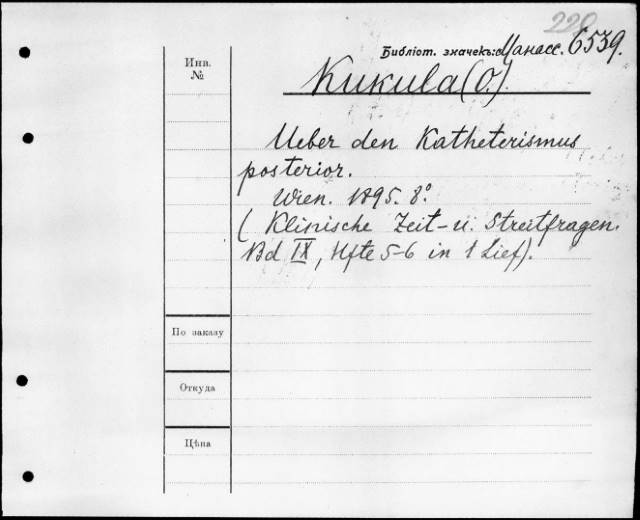 220
Библіот. значекъ: Манасс. 6539.
Инв.
№
Kukula (O.)
Ueber den Katheterismus
posterior.
Wien. 1895. 8°.
(Klinische Zeit- u. Streitfragen.
Bd IX, Hfte 5-6 in 1 Lief).
По заказу
Откуда
Цѣна